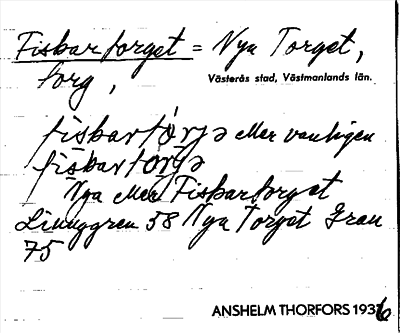 Fiskartorget = Nya Torget,
torg,
Västerås stad, Västmanlands län.
fiskartórjə eller vanligen
fiskartorjə
Nya eller Fiskartorget
Ljunggren 58 Nya Torget Grau
75
ANSHELM THORFORS 1936